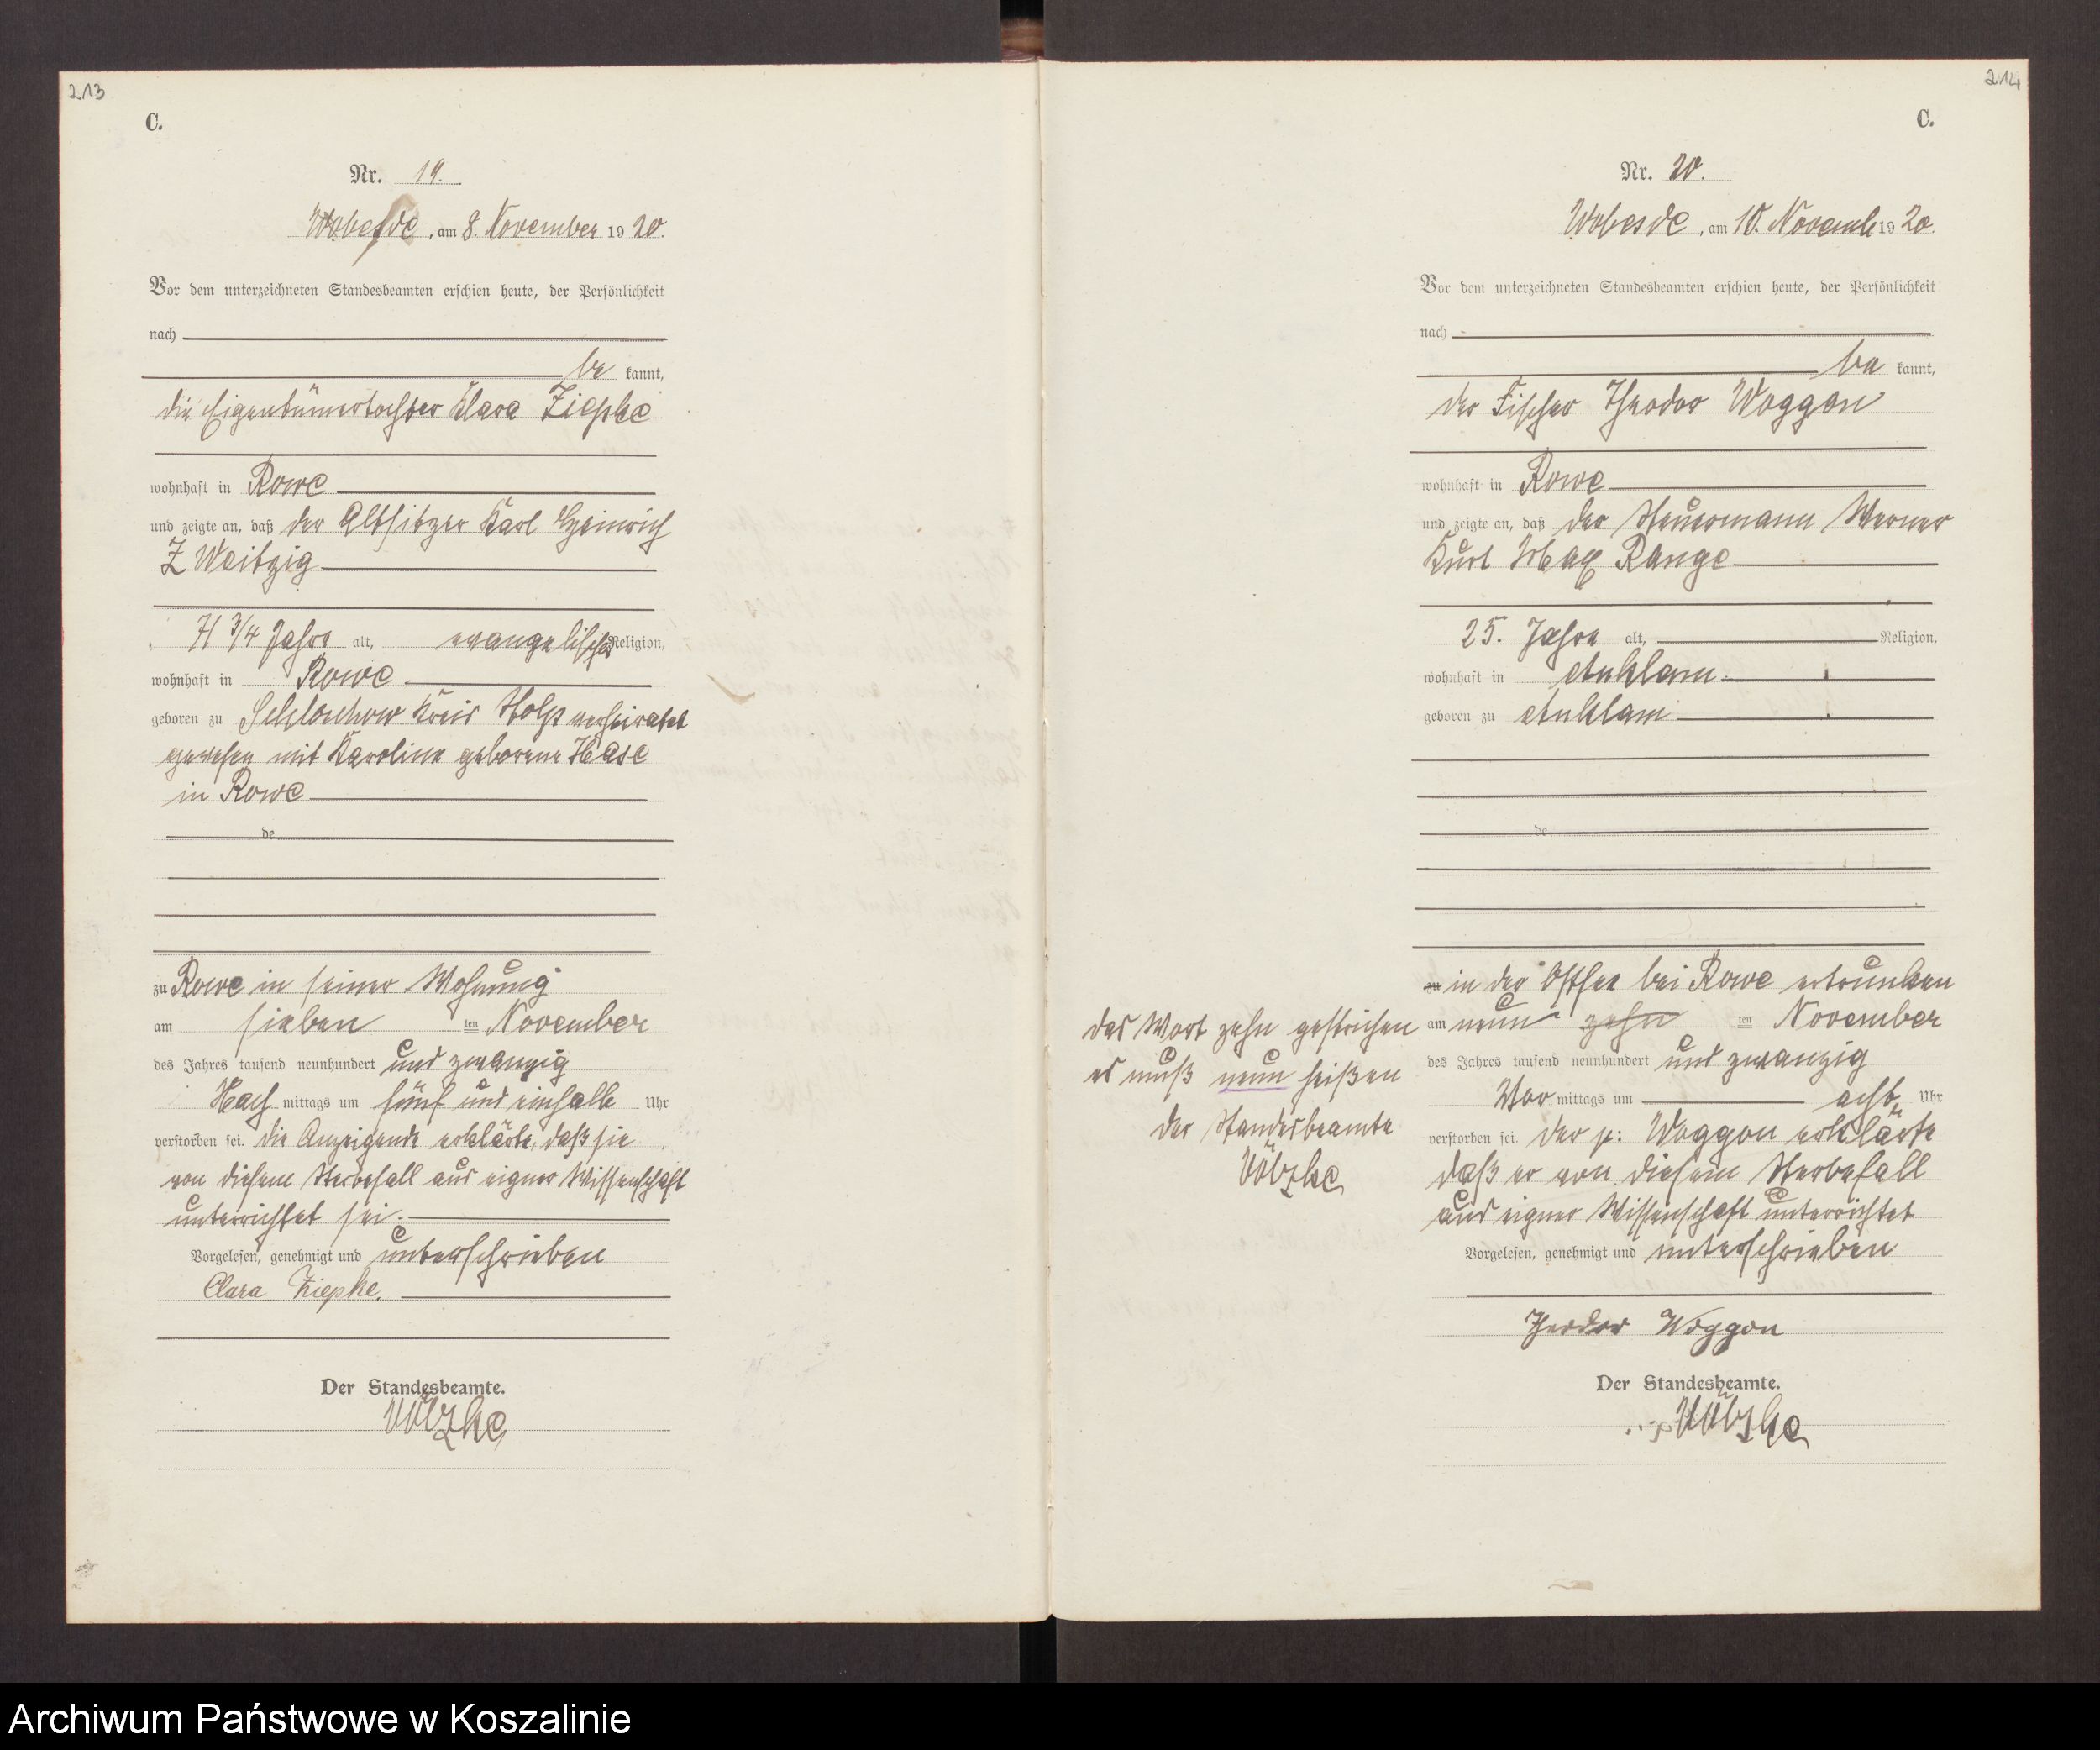 213
C.
Nr. 19.
Wobesde, am 8. November 1920.
Vor dem unterzeichneten Standesbeamten erschien heute, der Persönlichkeit
nach
be kannt,
die Eigentümertochter Klara Ziepke
wohnhaft in Rowe
und zeigte an, daß der Altsitzer Karl Heinrich
Z Weitzig
71 3/4 Jahre alt, evangelischer Religion,
wohnhaft in Rowe
geboren zu Kreis Stolp verheiratet
gewesen mit Karoline geborene Hase
in Rowe
de
zu Rowe in seiner Wohnung
am sieben ten November
des Jahres tausend neunhundert und zwanzig
Nach mittags um fünf und einhalb Uhr
verstorben sei. die Anzeigende erklärte, daß sie
von diesem Sterbefall aus eigner Wissenschaft
unterrichtet sei.
Vorgelesen, genehmigt und unterschrieben
Clara Ziepke.
Der Standesbeamte.
214
C.
Nr. 20.
Wobesde, am 10. Novemb 1920.
Vor dem unterzeichneten Standesbeamten erschien heute, der Persönlichkeit
nach
be kannt,
der Fischer Theodor Woggon
wohnhaft in Rowe
und zeigte an, daß der Steuermann Werner
Kurt Max Range
25. Jahre alt, Religion,
wohnhaft in Anklam
geboren zu Anklam
de
zu in der Ostsee bei Rowe ertrunken
am neun zehn ten November
des Jahres tausend neunhundert und zwanzig
Vor mittags um acht Uhr
verstorben sei. Der p: Woggon erklärte
daß er von diesem Sterbefall
aus eigner Wissenschaft unterrichtet
Vorgelesen, genehmigt und unterschrieben
Theodor Woggon
Der Standesbeamte.
das Wort zehn gestrichen
es muß neun heißen
der Standesbeamte
Archiwum Państwowe w Koszalinie